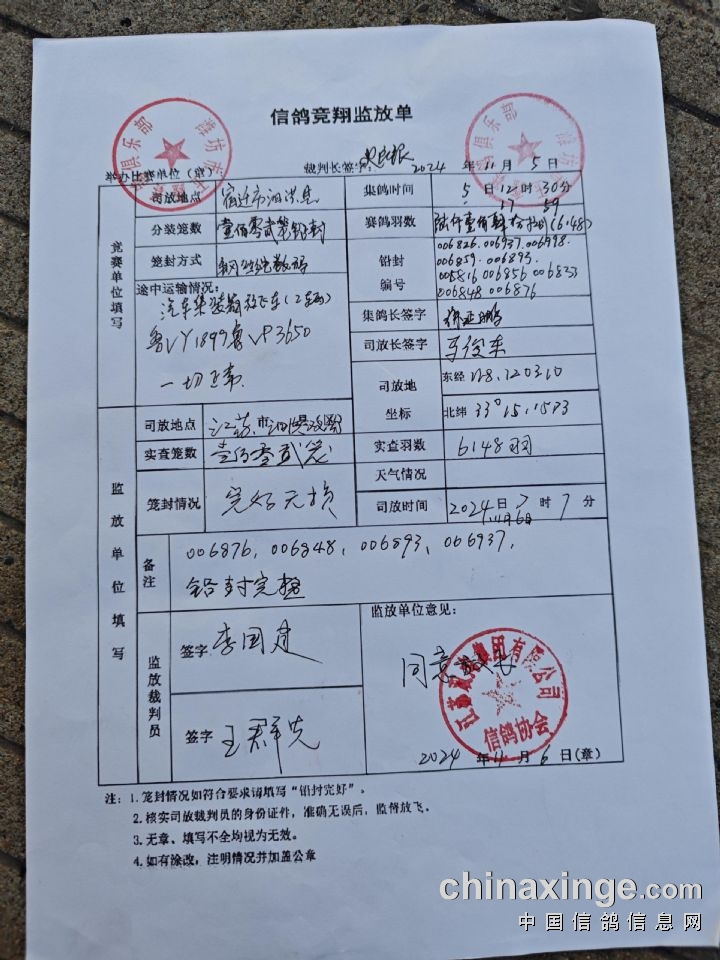 信鸽竞翔监放单
举办比赛单位（章）
裁判长签字：
2024 年 11 月 5 日
俱乐部
潍坊
俱乐部
潍坊
竞赛单位填写
司放地点 宿迁市泗洪县
集鸽时间 5 日 12 时 30 分
17 59
分装笼数 壹佰零贰笼铅封
赛鸽羽数 (6148)
笼封方式
铅封编号
006826.006937.006998.
006859.006893.
006816 006856 006833
006848 006876
途中运输情况:
汽车集装箱放飞车(2车辆)
鲁VY1899鲁VP3650
一切正常.
集鸽长签字
司放长签字 马俊东
司放地坐标
东经 118.120310
北纬 33°15.1573
监放单位填写
司放地点 江苏
实查笼数 壹佰零贰笼
实查羽数 6148羽
天气情况
笼封情况 完好无损
司放时间 2024 日 7 时 7 分
11月6日
备注
006876, 006848, 006893, 006937,
铅封完整
监放裁判员
签字 李国建
签字 王群先
监放单位意见:
同意
集团有限公司
信鸽协会
2024 年 11 月 6 日(章)
注: 1. 笼封情况如符合要求请填写“铅封完好”。
2. 核实司放裁判员的身份证件，准确无误后，监督放飞。
3. 无章、填写不全均视为无效。
4. 如有涂改，注明情况并加盖公章
chinaxinge.com
中国信鸽信息网